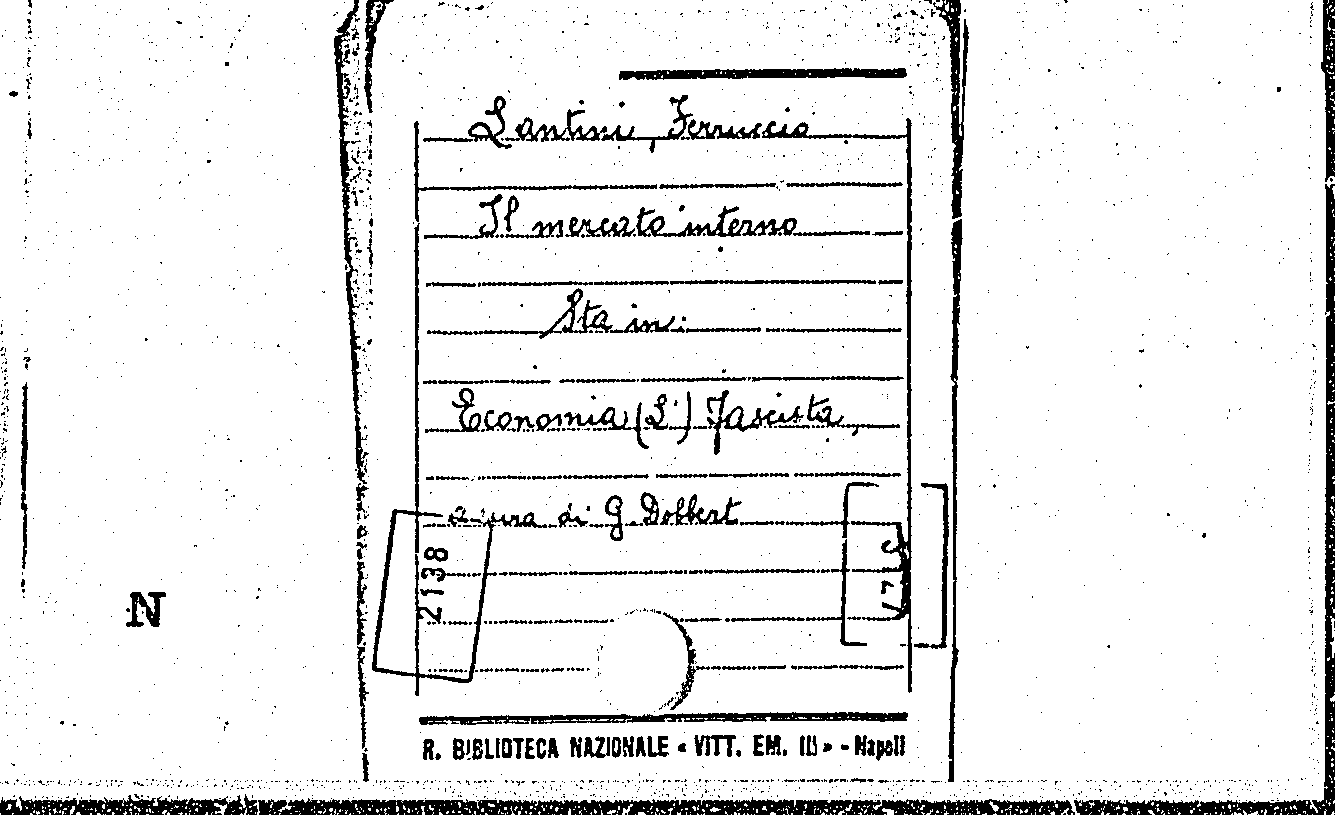 Lantini, Ferruccio
Il mercato interno
Sta in:
Economia (L') Fascista,
a cura di G. Dobbert
2138
N
R. BIBLIOTECA NAZIONALE « VITT. EM. III » - Napoli